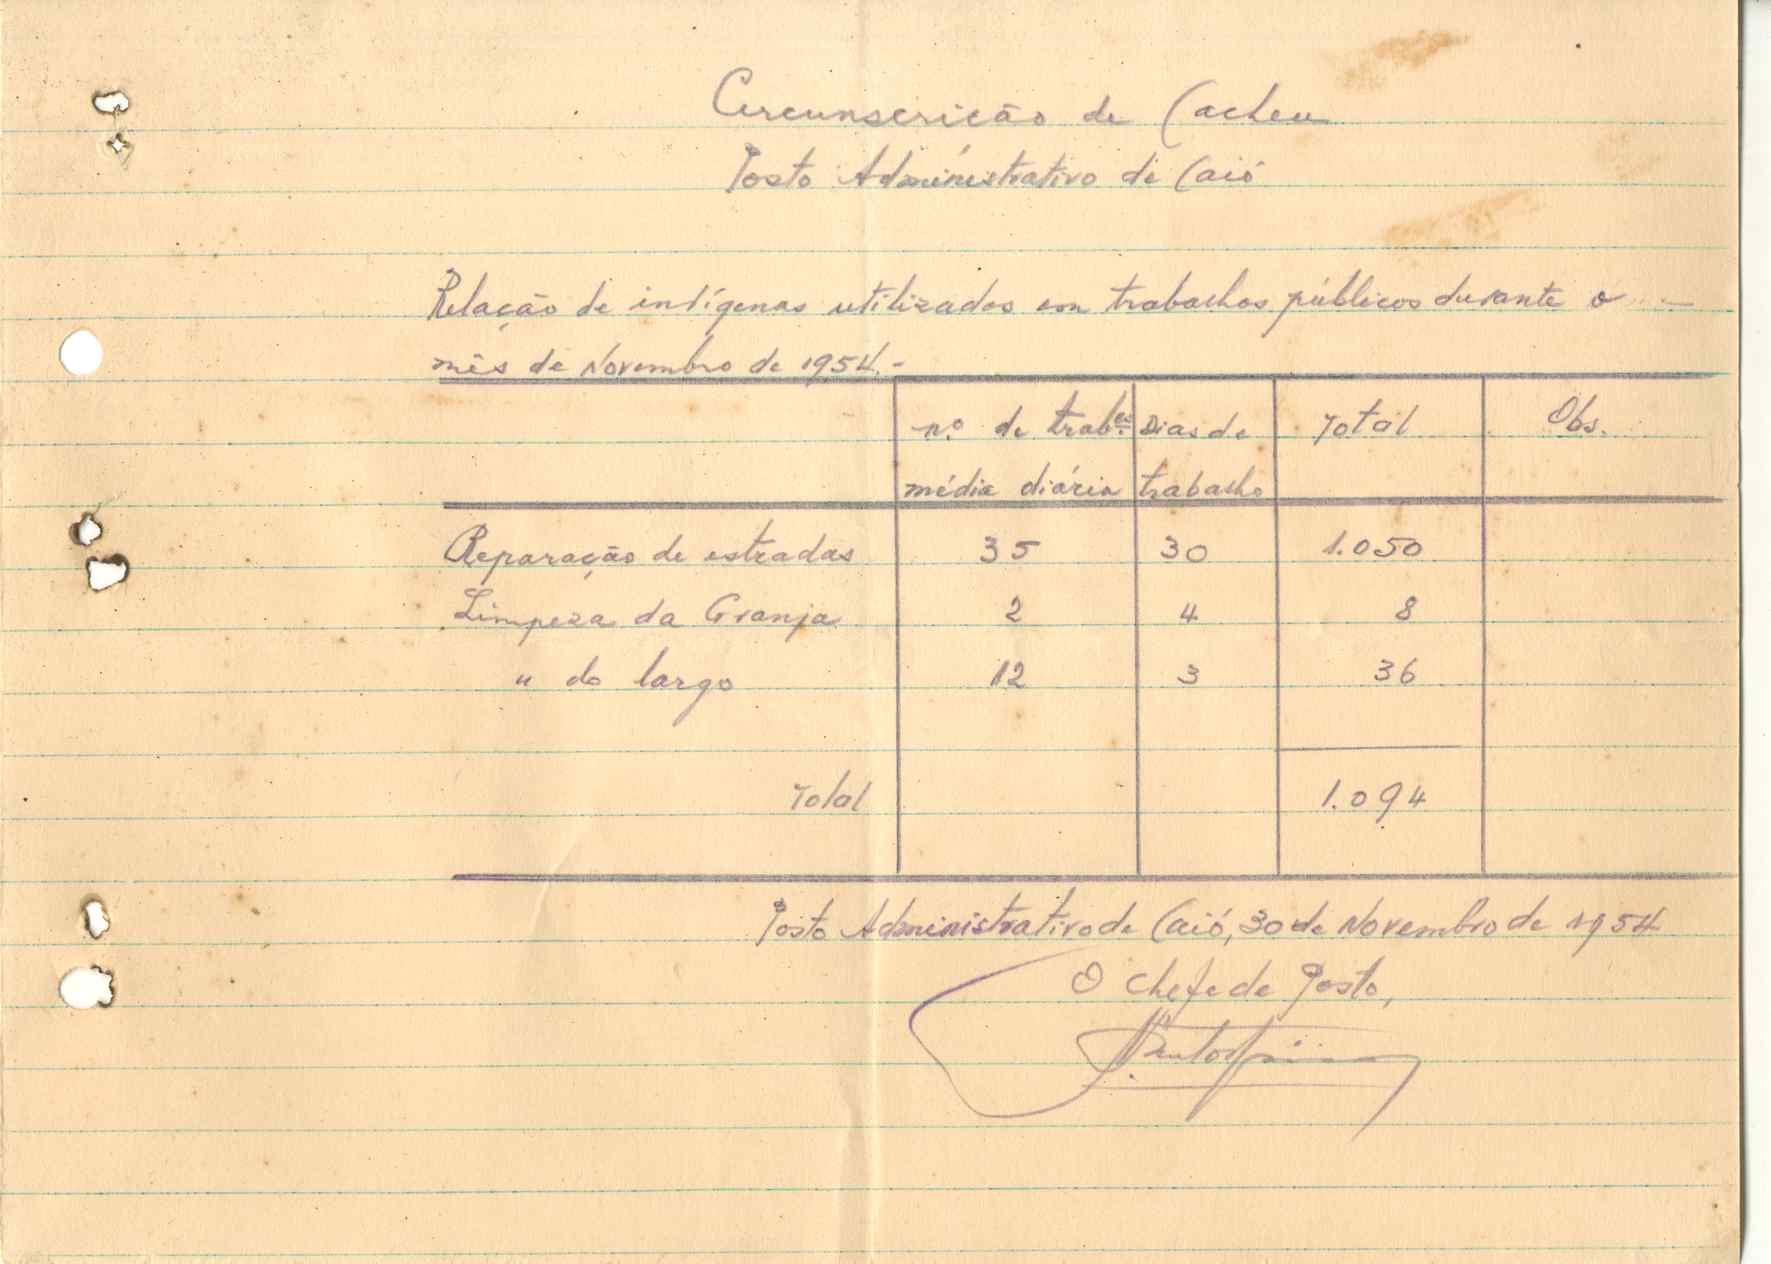 Circunscrição de Cacheu
Posto Administrativo de Caió
Relação de indígenas utilizados em trabalhos públicos durante o
mês de Novembro de 1954.-
nº de trabes Dias de Total Obs.
média diária trabalho
Reparação de estradas 35 30 1.050
Limpeza da Granja 2 4 8
" do largo 12 3 36
Total 1.094
Posto Administrativo de Caió, 30 de Novembro de 1954
O Chefe de Posto,